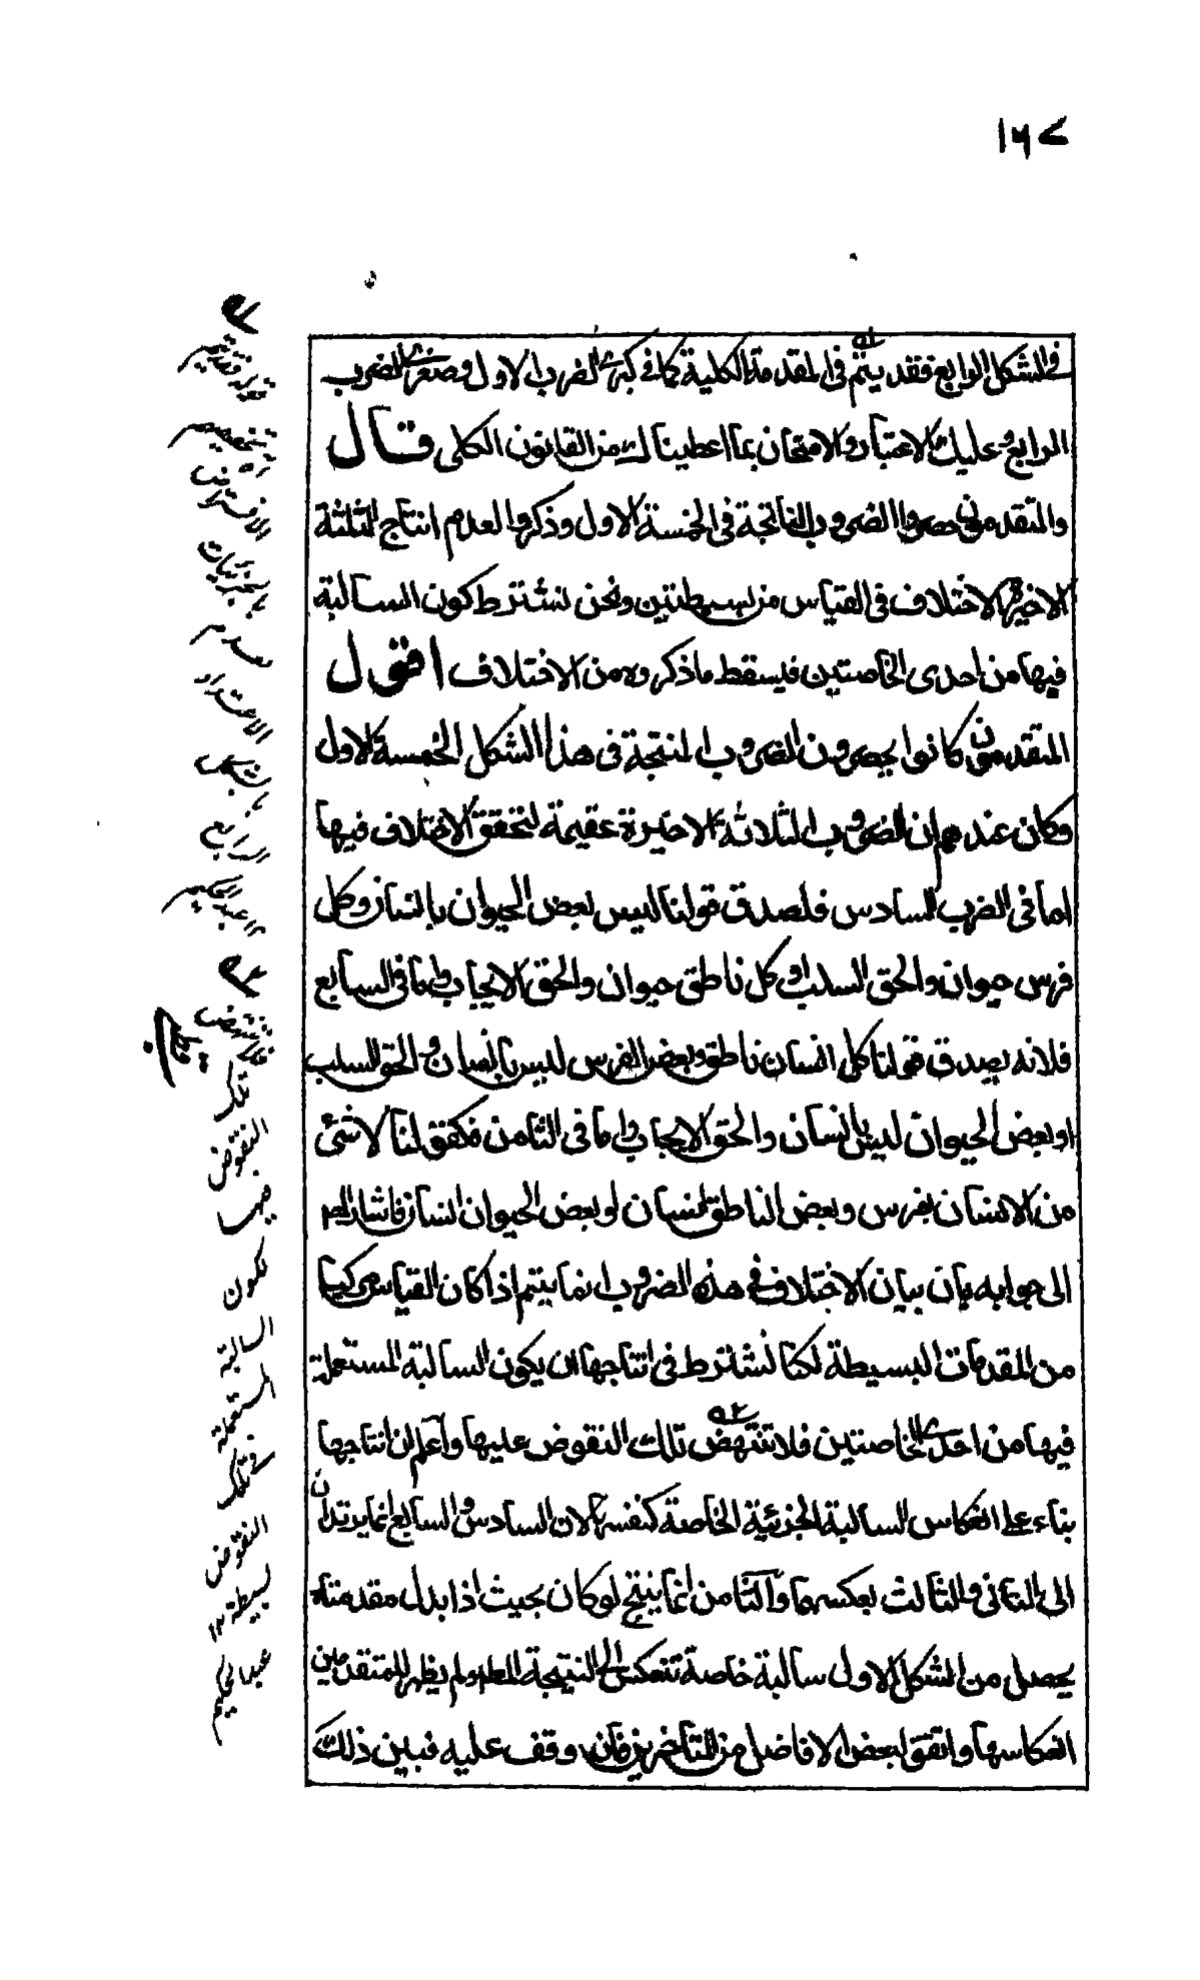 ١٦٧
فى الشكل الرابع فقد يتم فى المقدمة الكلية كما فى كبرى الضرب الاول وصغرى الضرب
الرابع وعليك الاعتبار والامتحان بما اعطيناك من القانون الكلى قال
والمتقدمون حصروا الضروب الناتجة فى الخمسة الاول وذكروا لعدم انتاج الثلثة
الاخيرة الاختلاف فى القياس من بسيطتين ونحن نشترط كون السالبة
فيها من احدى الخاصتين فيسقط ما ذكروه من الاختلاف اقول
المتقدمون كانوا يحصرون الضروب المنتجة فى هذا الشكل الخمسة الاول
وكان عندهم ان الضروب الثلاثة الاخيرة عقيمة لتحقق الاختلاف فيها
اما فى الضرب السادس فلصدق قولنا ليس بعض الحيوان بانسان وكل
فرس حيوان والحق السلب او كل ناطق حيوان والحق الايجاب واما فى السابع
فلانه يصدق قولنا كل انسان ناطق وبعض الفرس ليس بانسان والحق السلب
او بعض الحيوان ليس بانسان والحق الايجاب واما فى الثامن فكقولنا لا شئ
من الانسان بفرس وبعض الناطق انسان او بعض الحيوان انسان فاشار المص
الى جوابه بان بيان الاختلاف فى هذه الضروب انما يتم اذا كان القياس مركبا
من المقدمات البسيطة لكنا نشترط فى انتاجها ان يكون السالبة المستعملة
فيها من احدى الخاصتين فلا تنتهض تلك النقوض عليها واعلم ان انتاجها
بناء على انعكاس السالبة الجزئية الخاصة كنفسها لان السادس والسابع انما يرتدان
الى الثانى والثالث بعكسها والثامن انما ينتج لو كان بحيث اذا بدل مقدمتاه
يحصل من الشكل الاول سالبة خاصة تنعكس الى النتيجة المط ولم يظهر للمتقدمين
انعكاسها واتفق لبعض الافاضل من المتأخرين فانه وقف عليه فبين ذلك
الافتراض
بالجزئيات
لعدم
الاعتداد
بالشكل
الرابع
عبد الحكيم
قوله فلا تنتهض
تلك
النقوض
فيها
لكون
السالبة
المستعملة
فى تلك
النقوض
بسيطة ١٢
عبد الحكيم